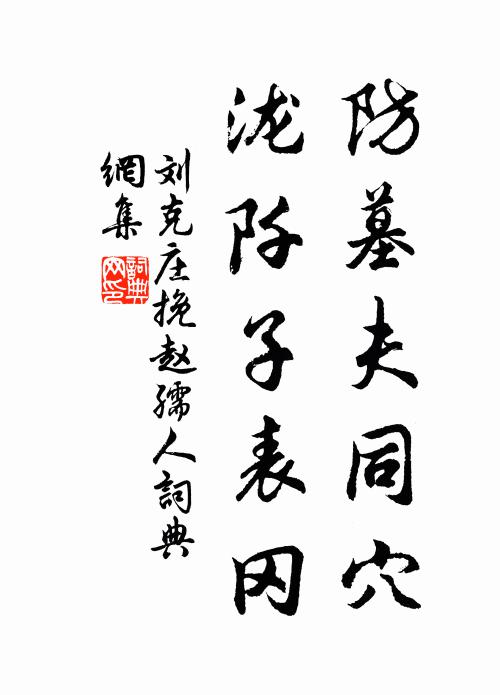 防墓夫同穴
泷阡子表冈
刘克庄挽赵孺人词典
網集
詞典網印